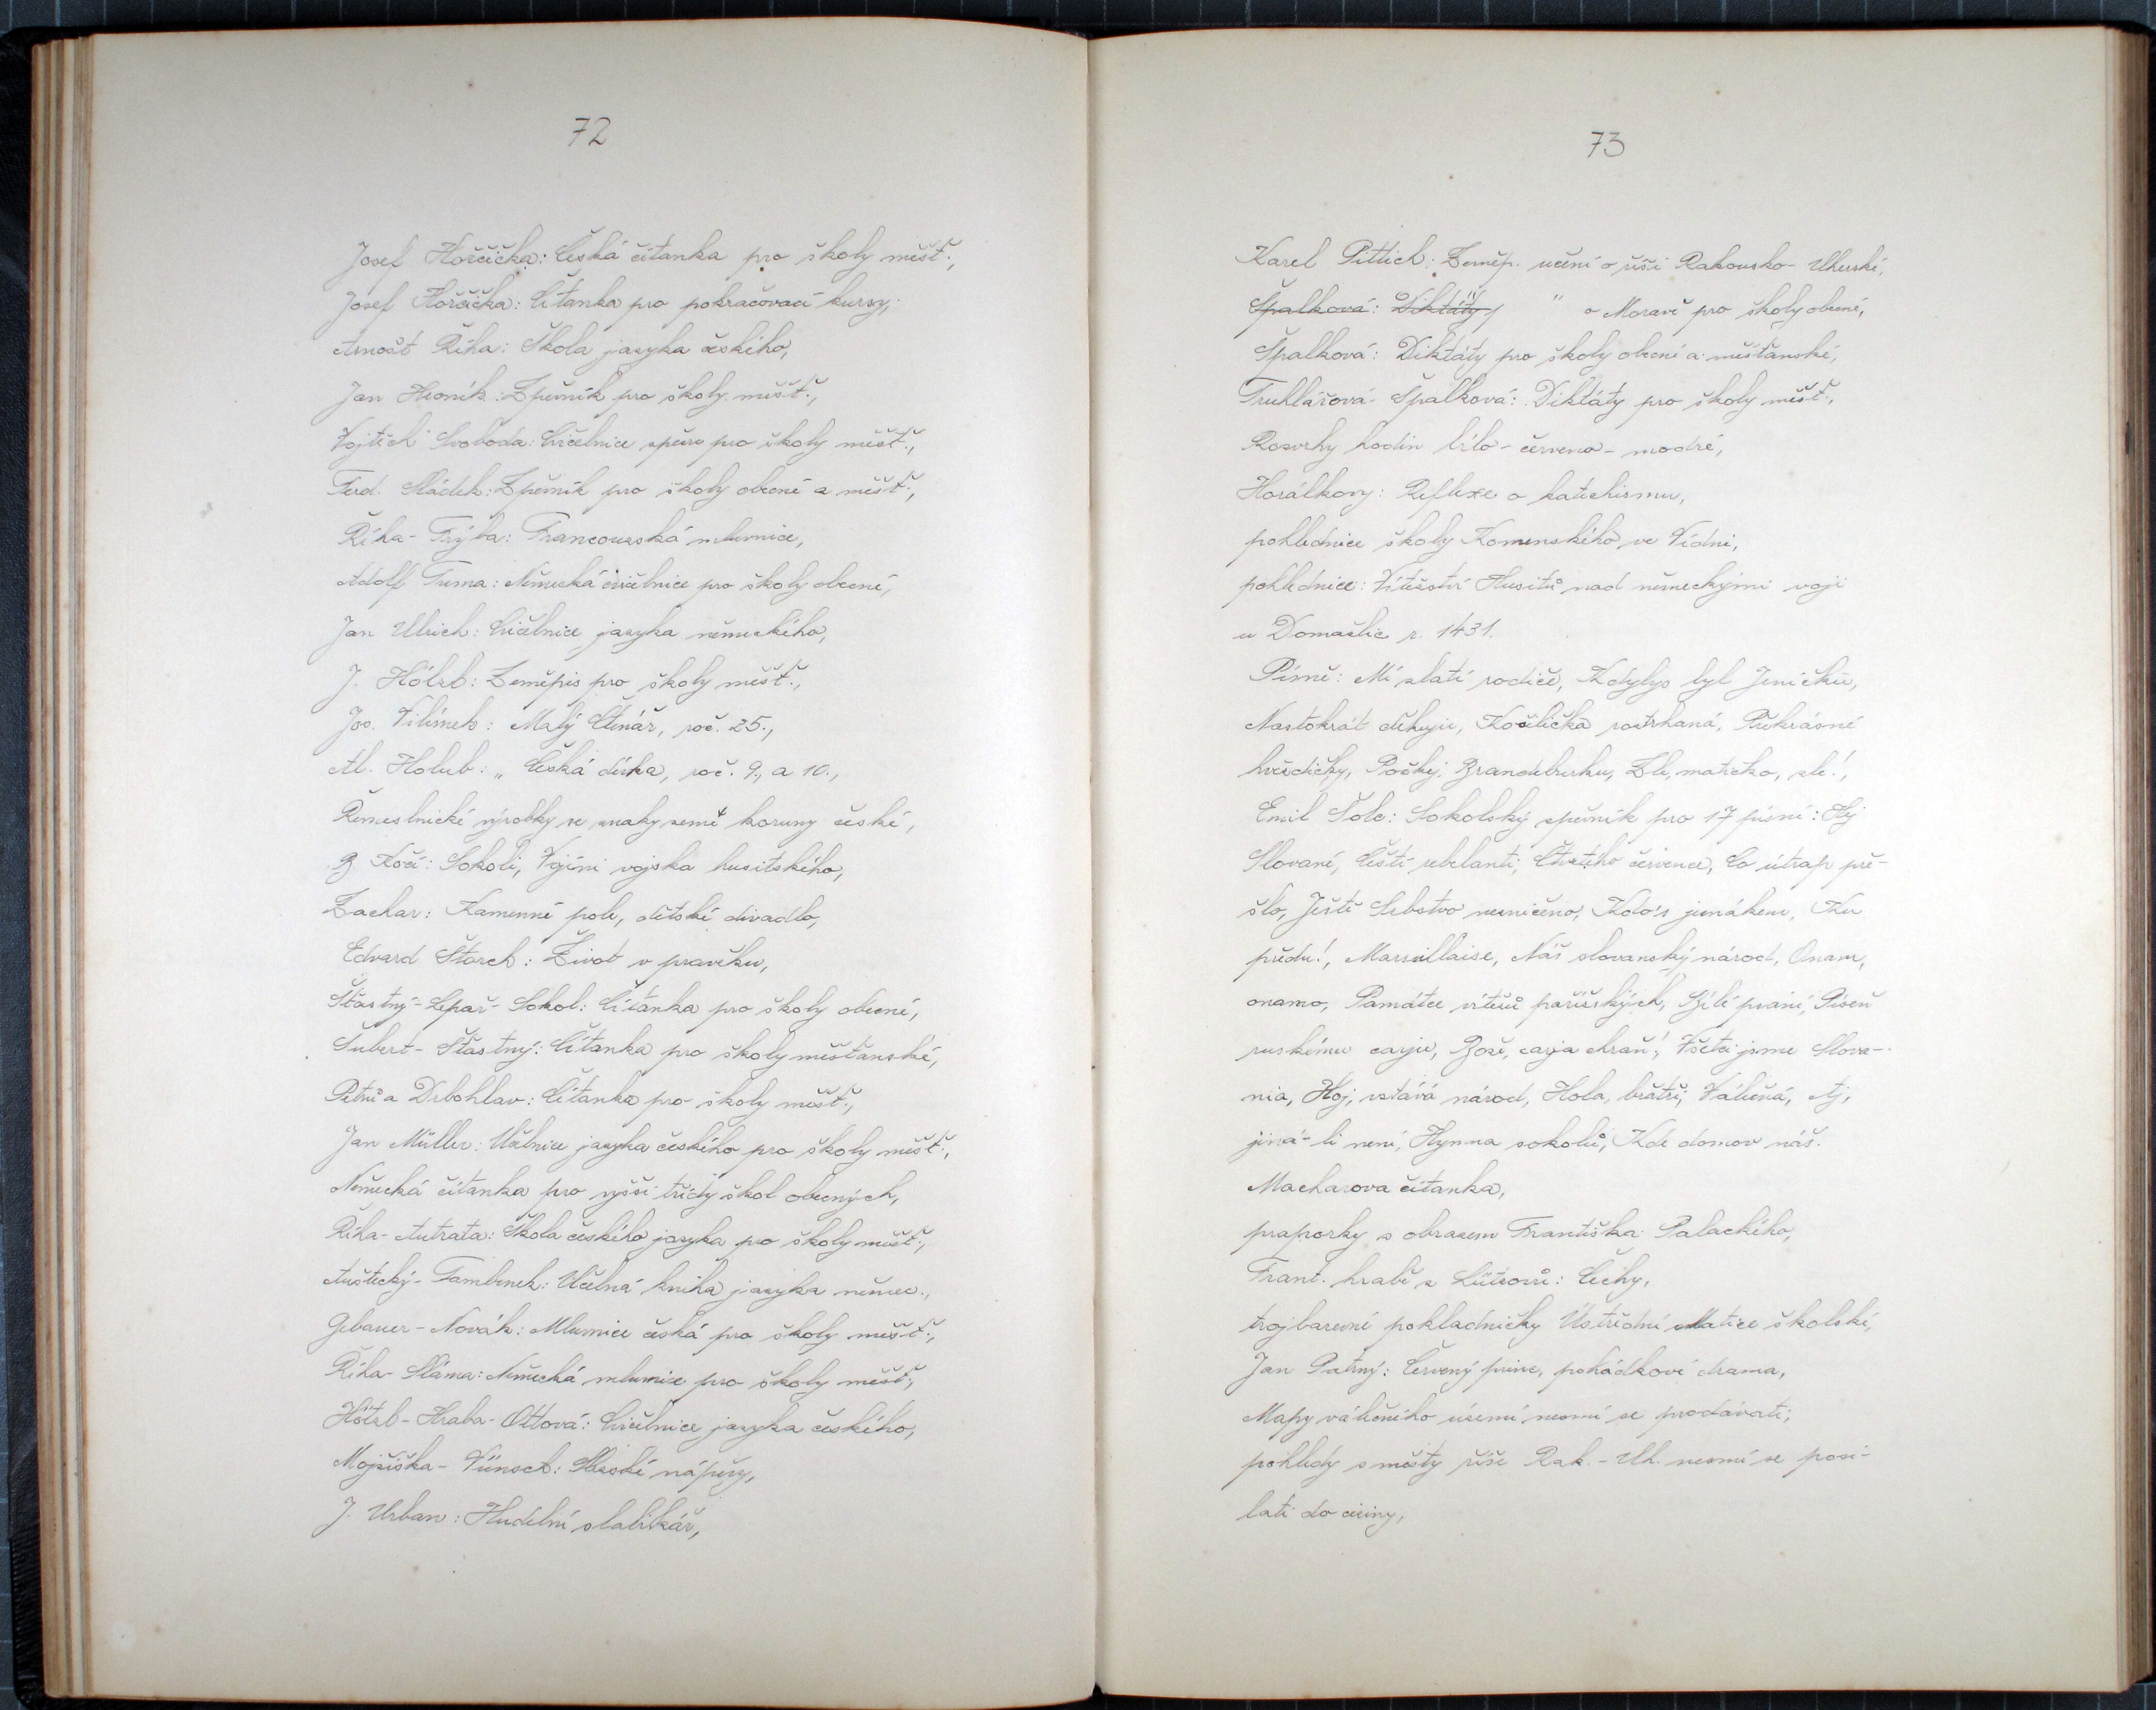 72
Josef Hořčička: Česká čítanka pro školy měšť.,
Josef Hořčička: Čítanka pro pokračovací kursy,
Arnošt Říha: Škola jazyka českého,
Jan Hroník: Zpěvník pro školy měšť.,
Vojtěch Svoboda: Cvičebnice zpěvu pro školy měšť.,
Ferd. Sládek: Zpěvník pro školy obecné a měšť.,
Říha-Trýba: Francouzská mluvnice,
Adolf Tůma: Německá cvičebnice pro školy obecné,
Jan Ulrich: Cvičebnice jazyka německého,
J. Hölzl: Zeměpis pro školy měšť.,
Jos. Vilímek: Malý Čtenář, roč. 25.,
Al. Holub: „ Česká dívka, roč. 9., a 10.,
Řemeslnické výrobky se znaky země koruny české,
B. Kočí: Sokoli, Vojíni vojska husitského,
Zachar: Kamenné pole, dětské divadlo,
Edvard Štorch: Život v pravěku,
Šťastný-Lepař-Sokol: Čítanka pro školy obecné,
Šubert-Šťastný: Čítanka pro školy měšťanské,
Petrů a Drbohlav: Čítanka pro školy měšť.,
Jan Müller: Učebnice jazyka českého pro školy měšť.,
Německá čítanka pro vyšší třídy škol obecných,
Říha-Autrata: Škola českého jazyka pro školy měšť.,
Auštecký-Tamlinek: Učebná kniha jazyka němec.,
Gebauer-Novák: Mluvnice česká pro školy měšť.,
Říha-Sláma: Německá mluvnice pro školy měšť.,
Hölzl-Hraba-Ottová: Cvičebnice jazyka českého,
Mojžíška-Vünsch: Slezské nápěvy,
J. Urban: Hudební slabikář,
73
Karel Pittich: Zeměp. učení o říši Rakousko-Uherské,
Špalková: Diktáty, " o Moravě pro školy obecné,
Špalková: Diktáty pro školy obecné a měšťanské,
Truhlářová-Špalková: Diktáty pro školy měšť.,
Rozvrhy hodin bílo-červeno-modré,
Horálkovy: Reflexe o katechismu,
pohlednice školy Komenského ve Vídni,
pohlednice: Vítězství Husitů nad německými voji
u Domažlic r. 1431.
Písně: Mí zlatí rodiče, Kdybys byl Jeníčku,
Nastokrát děkuju, Košilička roztrhaná, Překrásné
hvězdičky, Počkej Brandeburku, Zle, matičko, zle!,
Emil Šolc: Sokolský zpěvník pro 17 písní: Hej
Slované, Čeští rebelanti, Čtvrtého července, Co útrap pře-
šlo, Ještě Srbstvo nezničeno, Kdo's junákem, Ku
předu!, Marseillaise, Náš slovanský národ, Onam,
onamo, Památce vítězů pařížských, Bílé praní, Píseň
ruskému carju, Bože, carja chraň!, Všetci jsme Slova-
nia, Hoj, vstává národ, Hola, bratři, Válečná, Aj,
jiná-li není, Hymna sokolů, Kde domov náš.
Macharova čítanka,
praporky s obrazem Františka Palackého,
Frant. hrabě z Lützowů: Čechy,
trojbarevné pokladničky Ústřední Matice školské,
Jan Patrný: Červený princ, pohádkové drama,
Mapy válečného území nesmí se prodávati,
pohledy s městy říše Rak.-Uh. nesmí se posí-
lati do ciziny,